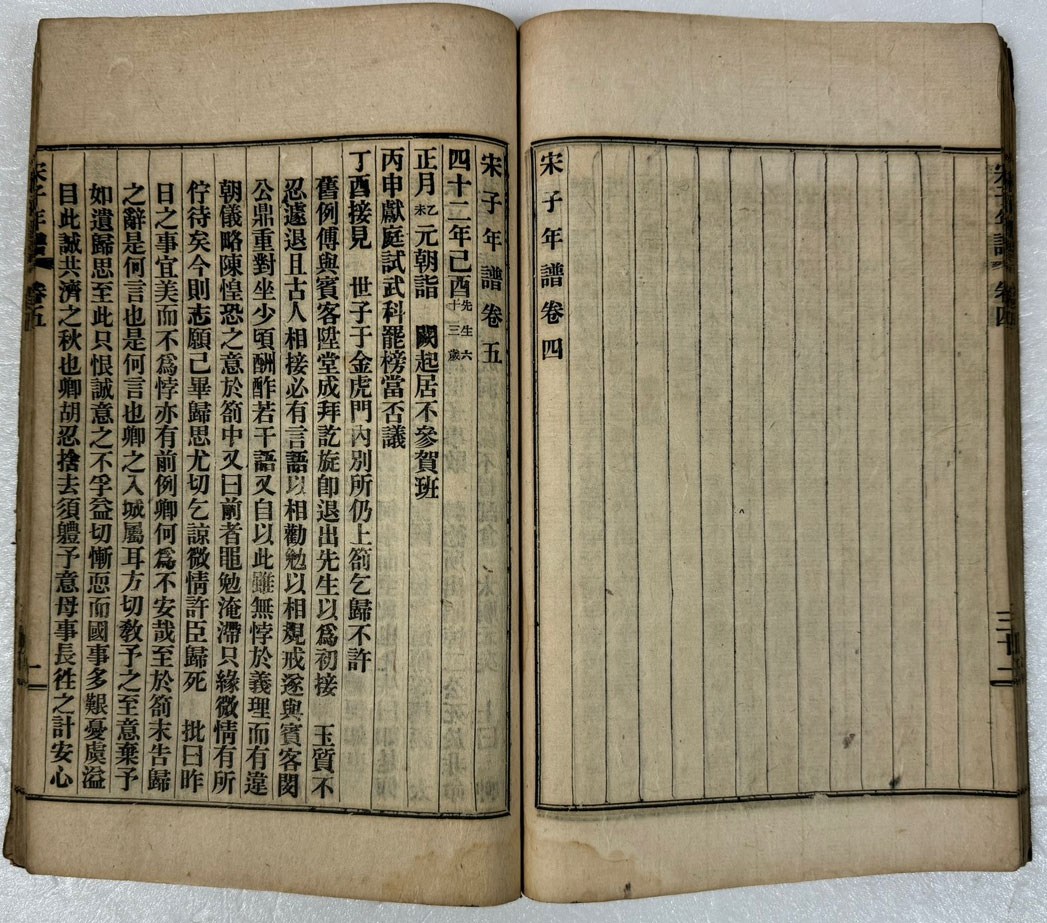 宋子年譜卷四
宋子年譜卷四
三十二
宋子年譜卷五
四十二年己酉先生六十三歲
正月乙未元朝詣　闕起居不參賀班
丙申獻庭試武科罷榜當否議
丁酉接見　世子于金虎門內別所仍上箚乞歸不許
舊例傅與賓客陞堂成拜訖旋卽退出先生以爲初接　玉質不
忍遽退且古人相接必有言語以相勸勉以相規戒遂與賓客閔
公鼎重對坐少頃酬酢若干語又自以此雖無悖於義理而有違
朝儀略陳惶恐之意於箚中又曰前者黽勉淹滯只緣微情有所
佇待矣今則志願已畢歸思尤切乞諒微情許臣歸死　批曰昨
日之事宜美而不爲悖亦有前例卿何爲不安哉至於箚末告歸
之辭是何言也是何言也卿之入城屬耳方切敎予之至意棄予
如遺歸思至此只恨誠意之不孚益切慚恧而國事多艱憂虞溢
目此誠共濟之秋也卿胡忍捨去須軆予意毋事長徃之計安心
宋子年譜　卷五
二